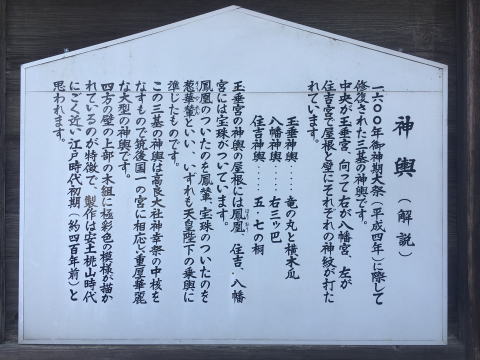 神輿（解説）
一六〇〇年御神期大祭（平成四年）に際して
修復された三基の神輿です。
中央が玉垂宮、向って右が八幡宮、左が
住吉宮で屋根と壁にそれぞれの神紋が打た
れています。
玉垂神輿……竜の丸と横木瓜
八幡神輿……右三ッ巴
住吉神輿……五・七の桐
玉垂宮の神輿の屋根には鳳凰、住吉、八幡
宮には宝珠がついています。
鳳凰のついたのを鳳輦、宝珠のついたのを
葱華輦といい、いずれも天皇陛下の乗輿に
準じたものです。
この三基の神輿は高良大社神幸祭の中核を
なすもので筑後国一の宮に相応じ重厚華麗
な大型の神輿です。
四方の壁の上部の木組に極彩色の模様が描か
れているのが特徴で、製作は安土桃山時代
にごく近い江戸時代初期（約四百年前）と
思われます。